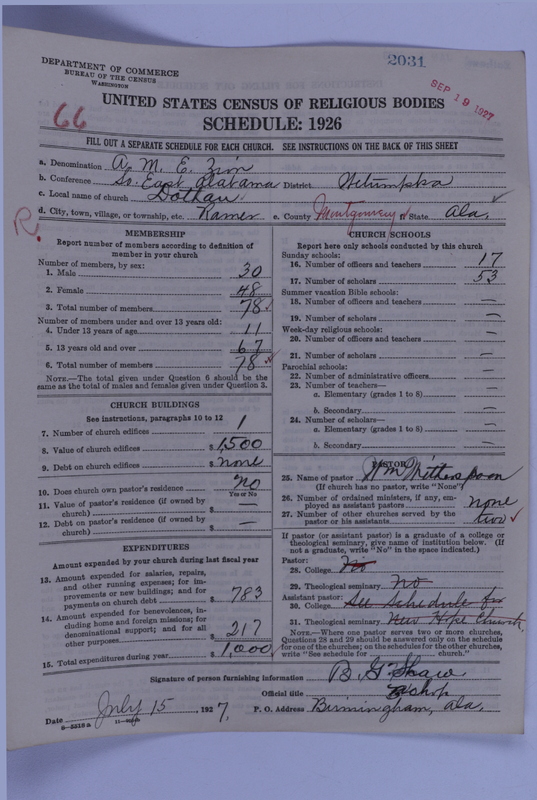 2031
DEPARTMENT OF COMMERCE
BUREAU OF THE CENSUS
WASHINGTON
SEP 19 1927
66
UNITED STATES CENSUS OF RELIGIOUS BODIES
SCHEDULE: 1926
FILL OUT A SEPARATE SCHEDULE FOR EACH CHURCH. SEE INSTRUCTIONS ON THE BACK OF THIS SHEET
a. Denomination A. M. E. Zion
b. Conference So. East Alabama District Wetumpka
c. Local name of church Dothan
d. City, town, village, or township, etc. Ramer e. County Montgomery f. State Ala.
R.
MEMBERSHIP
Report number of members according to definition of
member in your church
Number of members, by sex:
1. Male 30
2. Female 48
3. Total number of members 78
Number of members under and over 13 years old:
4. Under 13 years of age 11
5. 13 years old and over 67
6. Total number of members 78
NOTE.—The total given under Question 6 should be the
same as the total of males and females given under Question 3.
CHURCH BUILDINGS
See instructions, paragraphs 10 to 12
7. Number of church edifices 1
8. Value of church edifices $ 1,500
9. Debt on church edifices $ none
10. Does church own pastor's residence No
Yes or No
11. Value of pastor's residence (if owned by
church) $ —
12. Debt on pastor's residence (if owned by
church) $ —
EXPENDITURES
Amount expended by church during last fiscal year
13. Amount expended for salaries, repairs,
and other running expenses; for im-
provements or new buildings; and for
payments on church debt $ 783
14. Amount expended for benevolences, in-
cluding home and foreign missions; for
denominational support; and for all
other purposes $ 217
15. Total expenditures during year $ 1,000
CHURCH SCHOOLS
Report here only schools conducted by this church
Sunday schools:
16. Number of officers and teachers 17
17. Number of scholars 53
Summer vacation Bible schools:
18. Number of officers and teachers —
19. Number of scholars —
Week-day religious schools:
20. Number of officers and teachers —
21. Number of scholars —
Parochial schools:
22. Number of administrative officers —
23. Number of teachers—
a. Elementary (grades 1 to 8) —
b. Secondary —
24. Number of scholars—
a. Elementary (grades 1 to 8) —
b. Secondary —
PASTOR
25. Name of pastor Wm Witherspoon
(If church has no pastor, write "None")
26. Number of ordained ministers, if any, em-
ployed as assistant pastors none
27. Number of other churches served by the
pastor or his assistants two
If pastor (or assistant pastor) is a graduate of a college or
theological seminary, give name of institution below. (If
not a graduate, write "No" in the space indicated.)
Pastor:
28. College No
29. Theological seminary No
Assistant pastor:
30. College See schedule for
31. Theological seminary New Hope Church.
NOTE.—Where one pastor serves two or more churches,
Questions 28 and 29 should be answered only on the schedule
for one of the churches; on the schedules for the other churches,
write "See schedule for church."
Signature of person furnishing information B. G. Shaw
Official title Bishop
Date July 15, 1927. P. O. Address Birmingham, Ala.